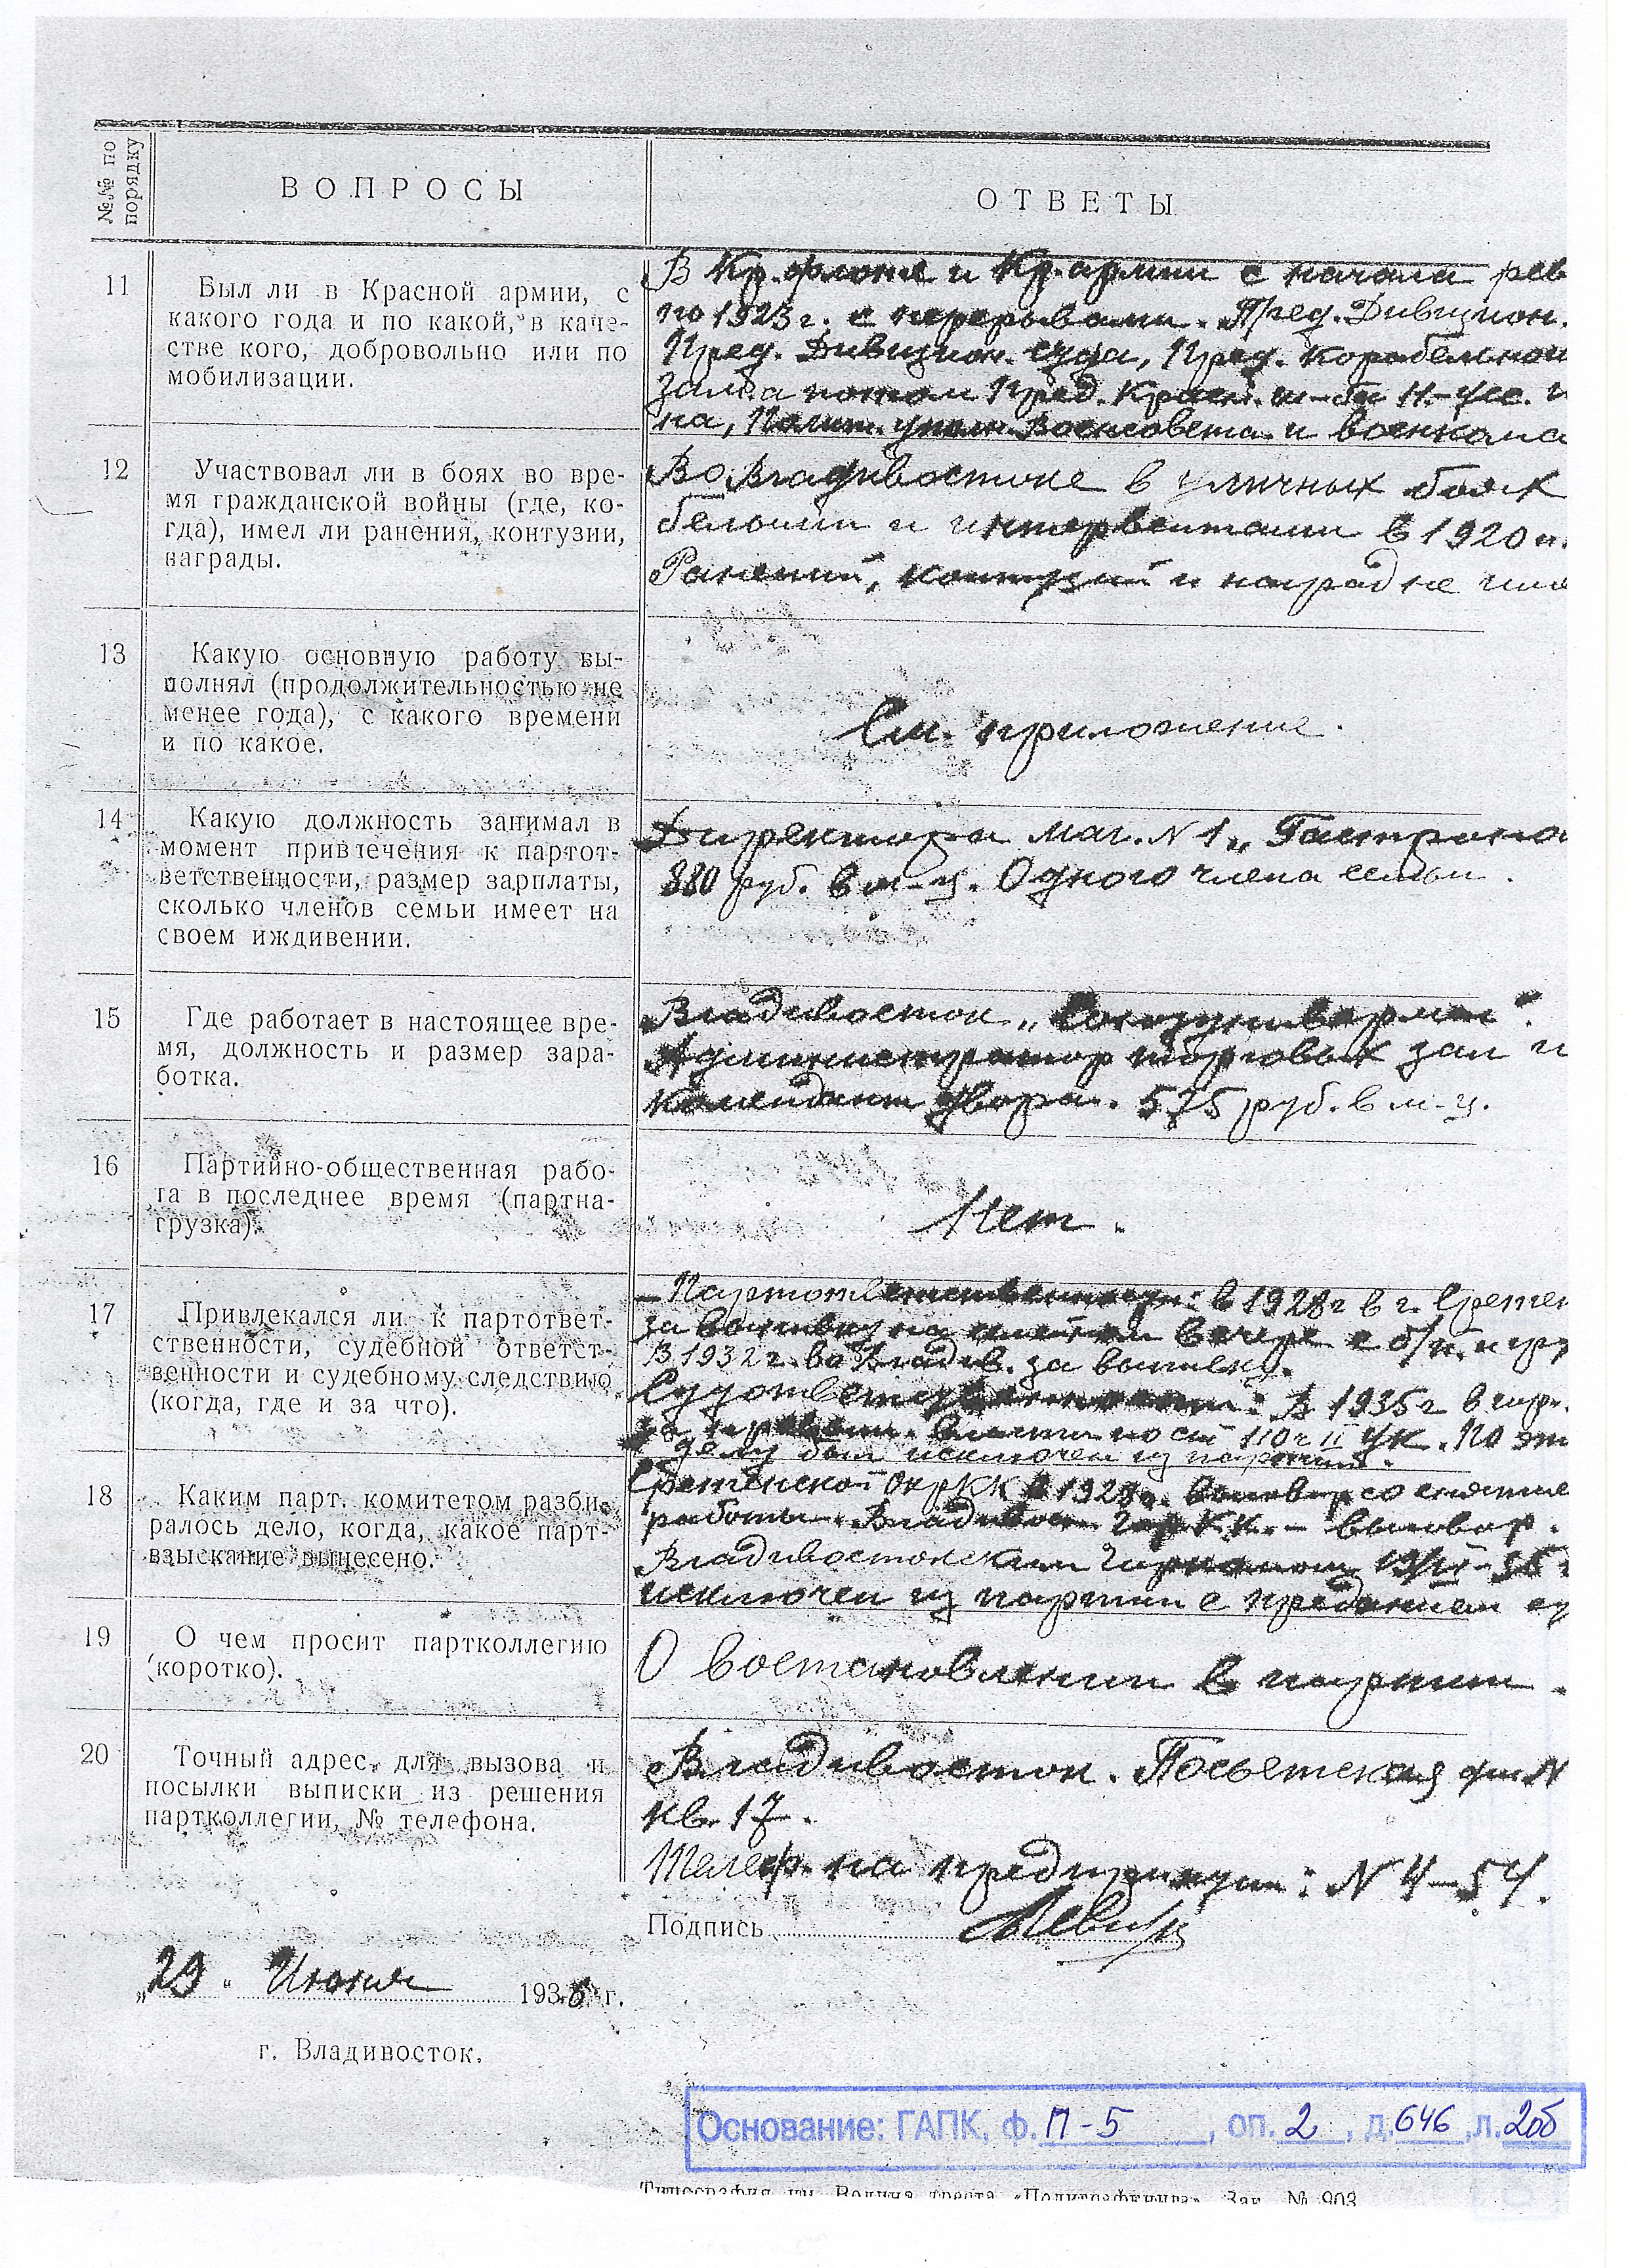 №№ по порядку
ВОПРОСЫ
ОТВЕТЫ
11
Был ли в Красной армии, с
какого года и по какой, в каче-
стве кого, добровольно или по
мобилизации.
В Кр. флоте и Кр. армии с начала рев
по 1923 г. с перерывами. Пред. Дивизион.
Пред. Дивизион. суда, Пред. Корабельной
потом Пред.
на, Полит. уполн. Военсовета и военкома
12
Участвовал ли в боях во вре-
мя гражданской войны (где, ко-
гда), имел ли ранения, контузии,
награды.
Во Владивостоке в уличных боях
белыми и интервентами в 1920 г.
Ранений, контузий и наград не име
13
Какую основную работу вы-
полнял (продолжительностью не
менее года), с какого времени
и по какое.
См. приложение.
14
Какую должность занимал в
момент привлечения к партот-
ветственности, размер зарплаты,
сколько членов семьи имеет на
своем иждивении.
Директора маг. N 1 „Гастроно
880 руб. в м-ц. Одного члена семьи.
15
Где работает в настоящее вре-
мя, должность и размер зара-
ботка.
Владивосток „Союзунивермаг".
Администратор торговых зал и
комендант двора. 575 руб. в м-ц.
16
Партийно-общественная рабо-
та в последнее время (партна-
грузка).
Нет.
17
Привлекался ли к партответ-
ственности, судебной ответст-
венности и судебному следствию
(когда, где и за что).
Партответственность: в 1928 г в г. Сретен
за выпивку на вечере с б/п.
В 1932 г. во Владив. за выпивку.
Судответственность: В 1935 г
власти по ст 110 ч II УК. По эт
делу был исключен из партии.
18
Каким парт. комитетом разби-
ралось дело, когда, какое парт-
взыскание вынесено.
Сретенской ОкрКК в 1928 г. выговор со снятие
работы. Владивост. ГорКК. – выговор.
Владивостокским Горкомом
исключен из партии с преданием су
19
О чем просит партколлегию
(коротко).
О востановлении в партии.
20
Точный адрес, для вызова и
посылки выписки из решения
партколлегии, № телефона.
Владивосток. Посьетская N
кв. 17.
Телеф. на предприятии: N 4–54.
Подпись Левицк
„29" Июня 1936 г.
г. Владивосток.
Основание: ГАПК, ф. П-5, оп. 2, д. 646, л. 2об
Типография им. Волина треста «Полиграфкнига». Зак. № 903